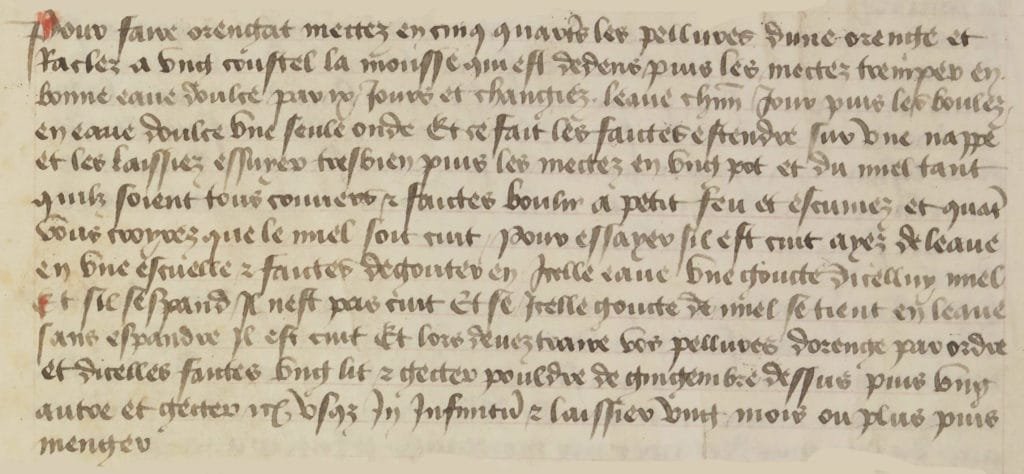 Pour faire orengat mectez en cinq quartrs les pellures dune orenge et
Raclez a ung coustel la mousse qui est dedens puis les mectez tremper en
bonne eaue doulce par ix Jours et changiez leaue chun Jour puis les boulez
en eaue doulce une seule onde Et ce fait les faictes estendre sur une nappe
et les laissiez essuyer tresbien puis les mectez en ung pot et du miel tant
quilz soient tous couvers & faictes boulir a petit feu et escumez et quant
vous croyrez que le miel soit cuit / Pour essayer sil est cuit ayez de leaue
en une escuelle & faictes degouter en Icelle eaue une goucte dicelluy miel
Et sil sespand Il nest pas cuit Et se Icelle goucte de miel se tient en leaue
sans espandre Il est cuit Et lors devez traire vos pellures dorenge par ordre
et dicelles faictes ung lit & gecter pouldre de gingembre dessus puis ung
autre et gecter &c usqz In Infinitu & laissier ung mois ou plus puis
menger